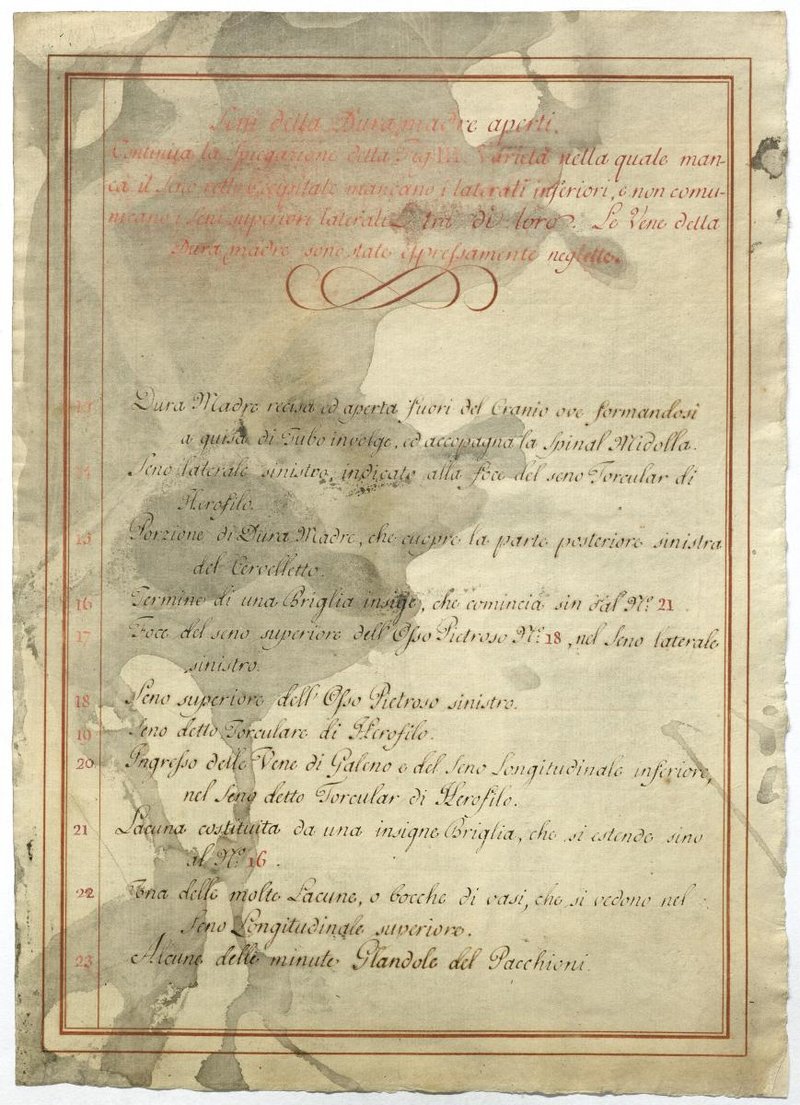 Seni della Dura madre aperti.
Continua la Spiegazione della Varietà nella quale man-
ca il Seno retto Occipitale mancano i laterali inferiori, e non comu-
nicano i Seni superiori laterali tra di loro. Le Vene della
Dura madre sono state espressamente neglette.
13 Dura Madre recisa ed aperta fuori del Cranio ove formandosi
a guisa di Tubo involge, ed accopagna la Spinal Midolla.
14 Seno laterale sinistro, indicato alla foce del seno Torcular di
Herofilo.
15 Porzione di Dura Madre, che cuopre la parte posteriore sinistra
del Cervelletto.
16 Termine di una Briglia insige, che comincia sin dal Nº. 21
17 Foce del seno superiore dell'Osso Pietroso Nº. 18, nel Seno laterale
sinistro.
18 Seno superiore dell'Osso Pietroso sinistro.
19 Seno detto Torculare di Herofilo.
20 Ingresso delle Vene di Galeno e del Seno Longitudinale inferiore,
nel Seno detto Torcular di Herofilo.
21 Lacuna costituita da una insigne Briglia, che si estende sino
al Nº. 16.
22 Una delle molte Lacune, o bocche di vasi, che si vedono nel
Seno Longitudinale superiore.
23 Alcune delle minute Glandole del Pacchioni.